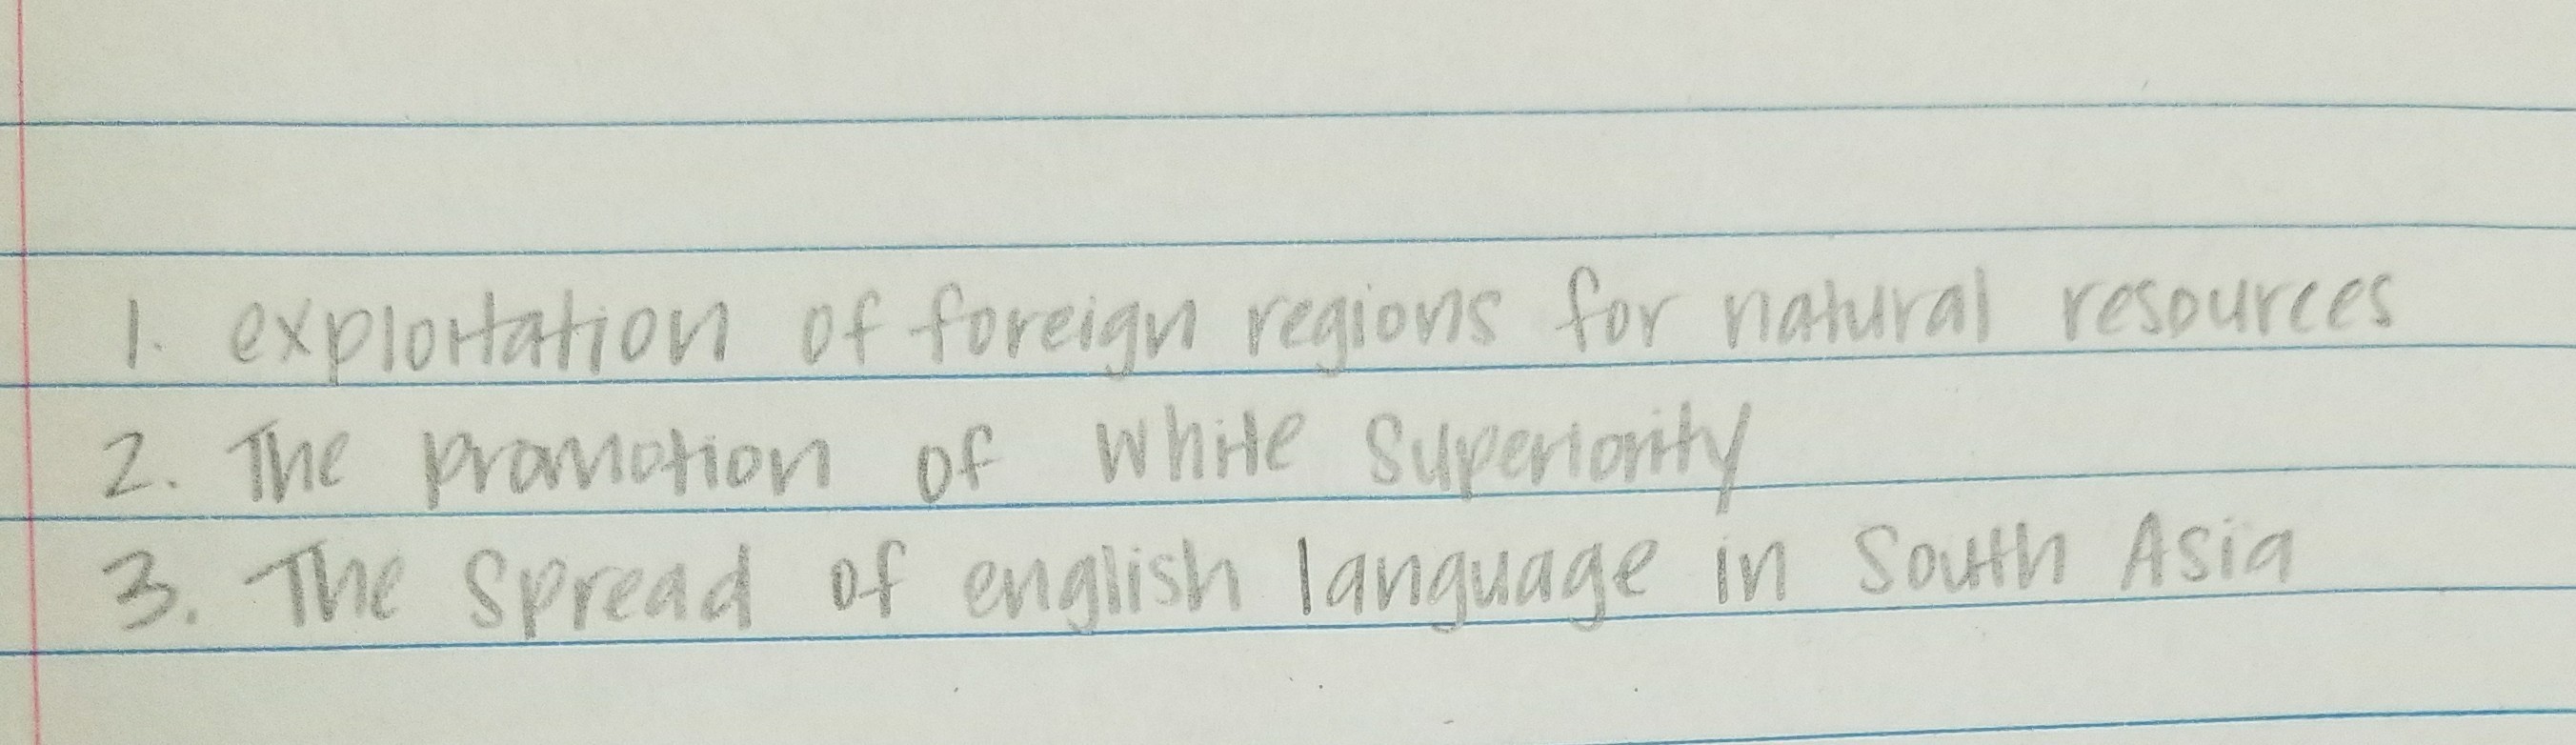 1. exploitation of foreign regions for natural resources
2. The promotion of white superiority
3. The spread of english language in South Asia